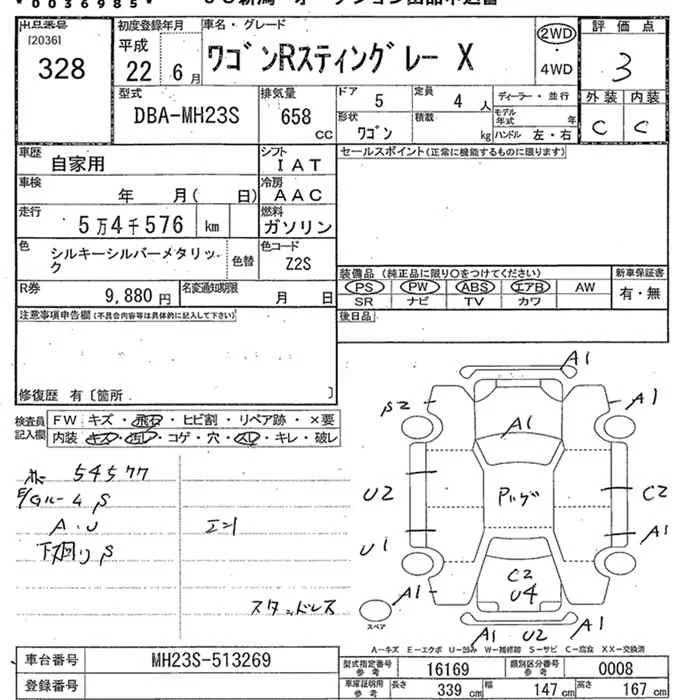 * 0036985 *
出品番号 初度登録年月 車名・グレード 評価点
[2036]
328
平成
22 6月
ワゴンRスティングレー X
2WD
・
4WD
3
型式 排気量 ドア 5 定員 4 人 ディーラー・並行 外装 内装
DBA-MH23S 658 cc
形状 ワゴン 積載 kg モデル年式 年
ハンドル 左・右
C C
車歴 自家用 シフト IAT セールスポイント(正常に機能するものに限ります)
車検 年 月( 日) 冷房 AAC
走行 5万4千576 km 燃料 ガソリン
色 シルキーシルバーメタリック 色替 色コード Z2S
装備品(純正品に限り○をつけてください) 新車保証書
R券 9,880 円 名変通知期限 月 日
PS PW ABS エアB AW 有・無
SR ナビ TV カワ
注意事項申告欄(不具合内容等は具体的に記入して下さい) 後日品
修復歴 有〔箇所 〕
検査員記入欄 FW キズ・飛石・ヒビ割・リペア跡・×要
内装 キズ・汚レ・コゲ・穴・スレ・キレ・破レ
54577
A・U エント
下廻りS
スタッドレス
A1
S2 A1 A1
U2 Pハゲ C2
U1 A1
A1 C2
U4
スペア
A1 U2 A1
A-キズ E-エクボ U-凹み W-補修跡 S-サビ C-腐食 XX-交換済
車台番号 MH23S-513269 型式指定番号参考 16169 類別区分番号参考 0008
登録番号 車庫証明用参考 長さ 339 cm 幅 147 cm 高さ 167 cm